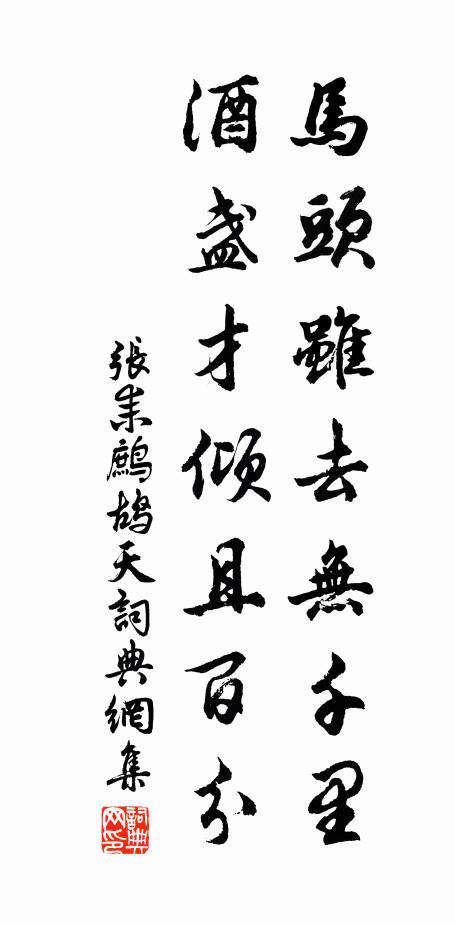 馬頭雖去無千里
酒盞才傾且百分
張耒鷓鴣天詞典網集
詞典网印